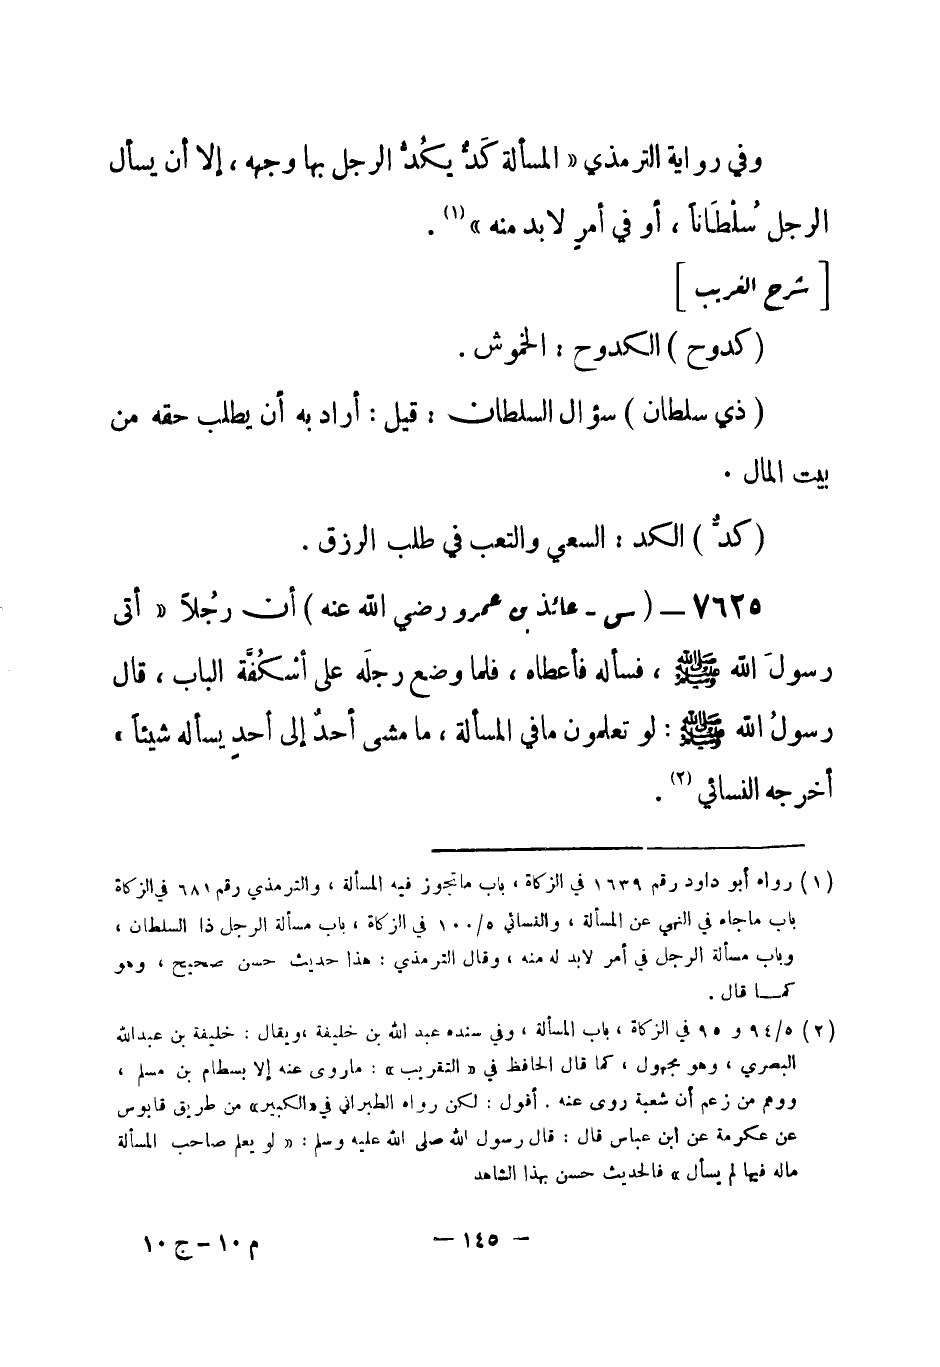 وفي رواية الترمذي « المسألة كَدٌّ يكُدُّ الرجل بها وجهه ، إلا أن يسأل
الرجل سُلْطَاناً ، أو في أمرٍ لابد منه »(١) .
[ شرح الغريب ]
( كدوح ) الكدوح : الخموش .
( ذي سلطان ) سؤال السلطان : قيل : أراد به أن يطلب حقه من
بيت المال .
( كدٌّ ) الكد : السعي والتعب في طلب الرزق .
٧٦٢٥ — ( س - عائذ بن عمرو رضي الله عنه ) أن رجُلاً « أتى
رسولَ الله ﷺ ، فسأله فأعطاه ، فلما وضع رجلَه على أسْكُفَّة الباب ، قال
رسولُ الله ﷺ : لو تعلمون مافي المسألة ، ما مشى أحدٌ إلى أحدٍ يسأله شيئاً »
أخرجه النسائي (٢) .
(١) رواه أبو داود رقم ١٦٣٩ في الزكاة ، باب ماتجوز فيه المسألة ، والترمذي رقم ٦٨١ في الزكاة
باب ماجاء في النهي عن المسألة ، والنسائي ١٠٠/٥ في الزكاة ، باب مسألة الرجل ذا السلطان ،
وباب مسألة الرجل في أمر لابد له منه ، وقال الترمذي : هذا حديث حسن صحيح ، وهو
كمـــا قال .
(٢) ٩٤/٥ و ٩٥ في الزكاة ، باب المسألة ، وفي سنده عبد الله بن خليفة ،ويقال : خليفة بن عبدالله
البصري ، وهو مجهول ، كما قال الحافظ في « التقريب » : ماروى عنه إلا بسطام بن مسلم ،
ووهم من زعم أن شعبة روى عنه . أقول : لكن رواه الطبراني في«الكبير» من طريق قابوس
عن عكرمة عن ابن عباس قال : قال رسول الله صلى الله عليه وسلم : « لو يعلم صاحب المسألة
ماله فيها لم يسأل » فالحديث حسن بهذا الشاهد
— ١٤٥ —
م ١٠ - ج ١٠